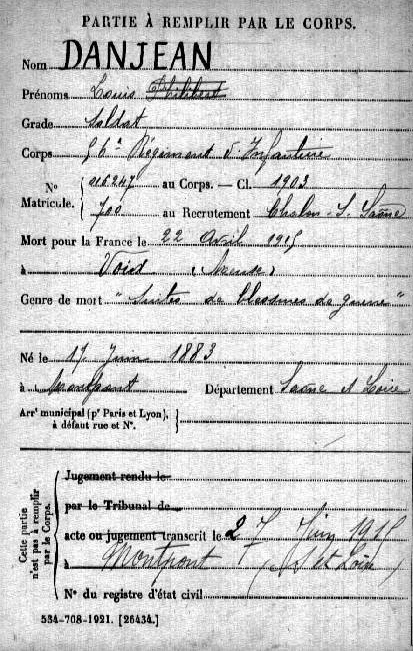 PARTIE À REMPLIR PAR LE CORPS.
Nom DANJEAN
Prénoms Louis Philibert
Grade Soldat
Corps 56e Régiment d'Infanterie
No 016247 au Corps. — Cl. 1903
Matricule. 700 au Recrutement Chalon-S-Saône
Mort pour la France le 22 Avril 1915
à Void (Meuse)
Genre de mort "Suites de blessures de guerre"
Né le 17 Juin 1883
à Montpont Département Saône et Loire
Arrt municipal (pr Paris et Lyon),
à défaut rue et No.
Cette partie
n'est pas à remplir
par le Corps.
Jugement rendu le
par le Tribunal de
acte ou jugement transcrit le 27 Juin 1915
à Montpont (S et Loire)
No du registre d'état civil
534-708-1921. [26434.]